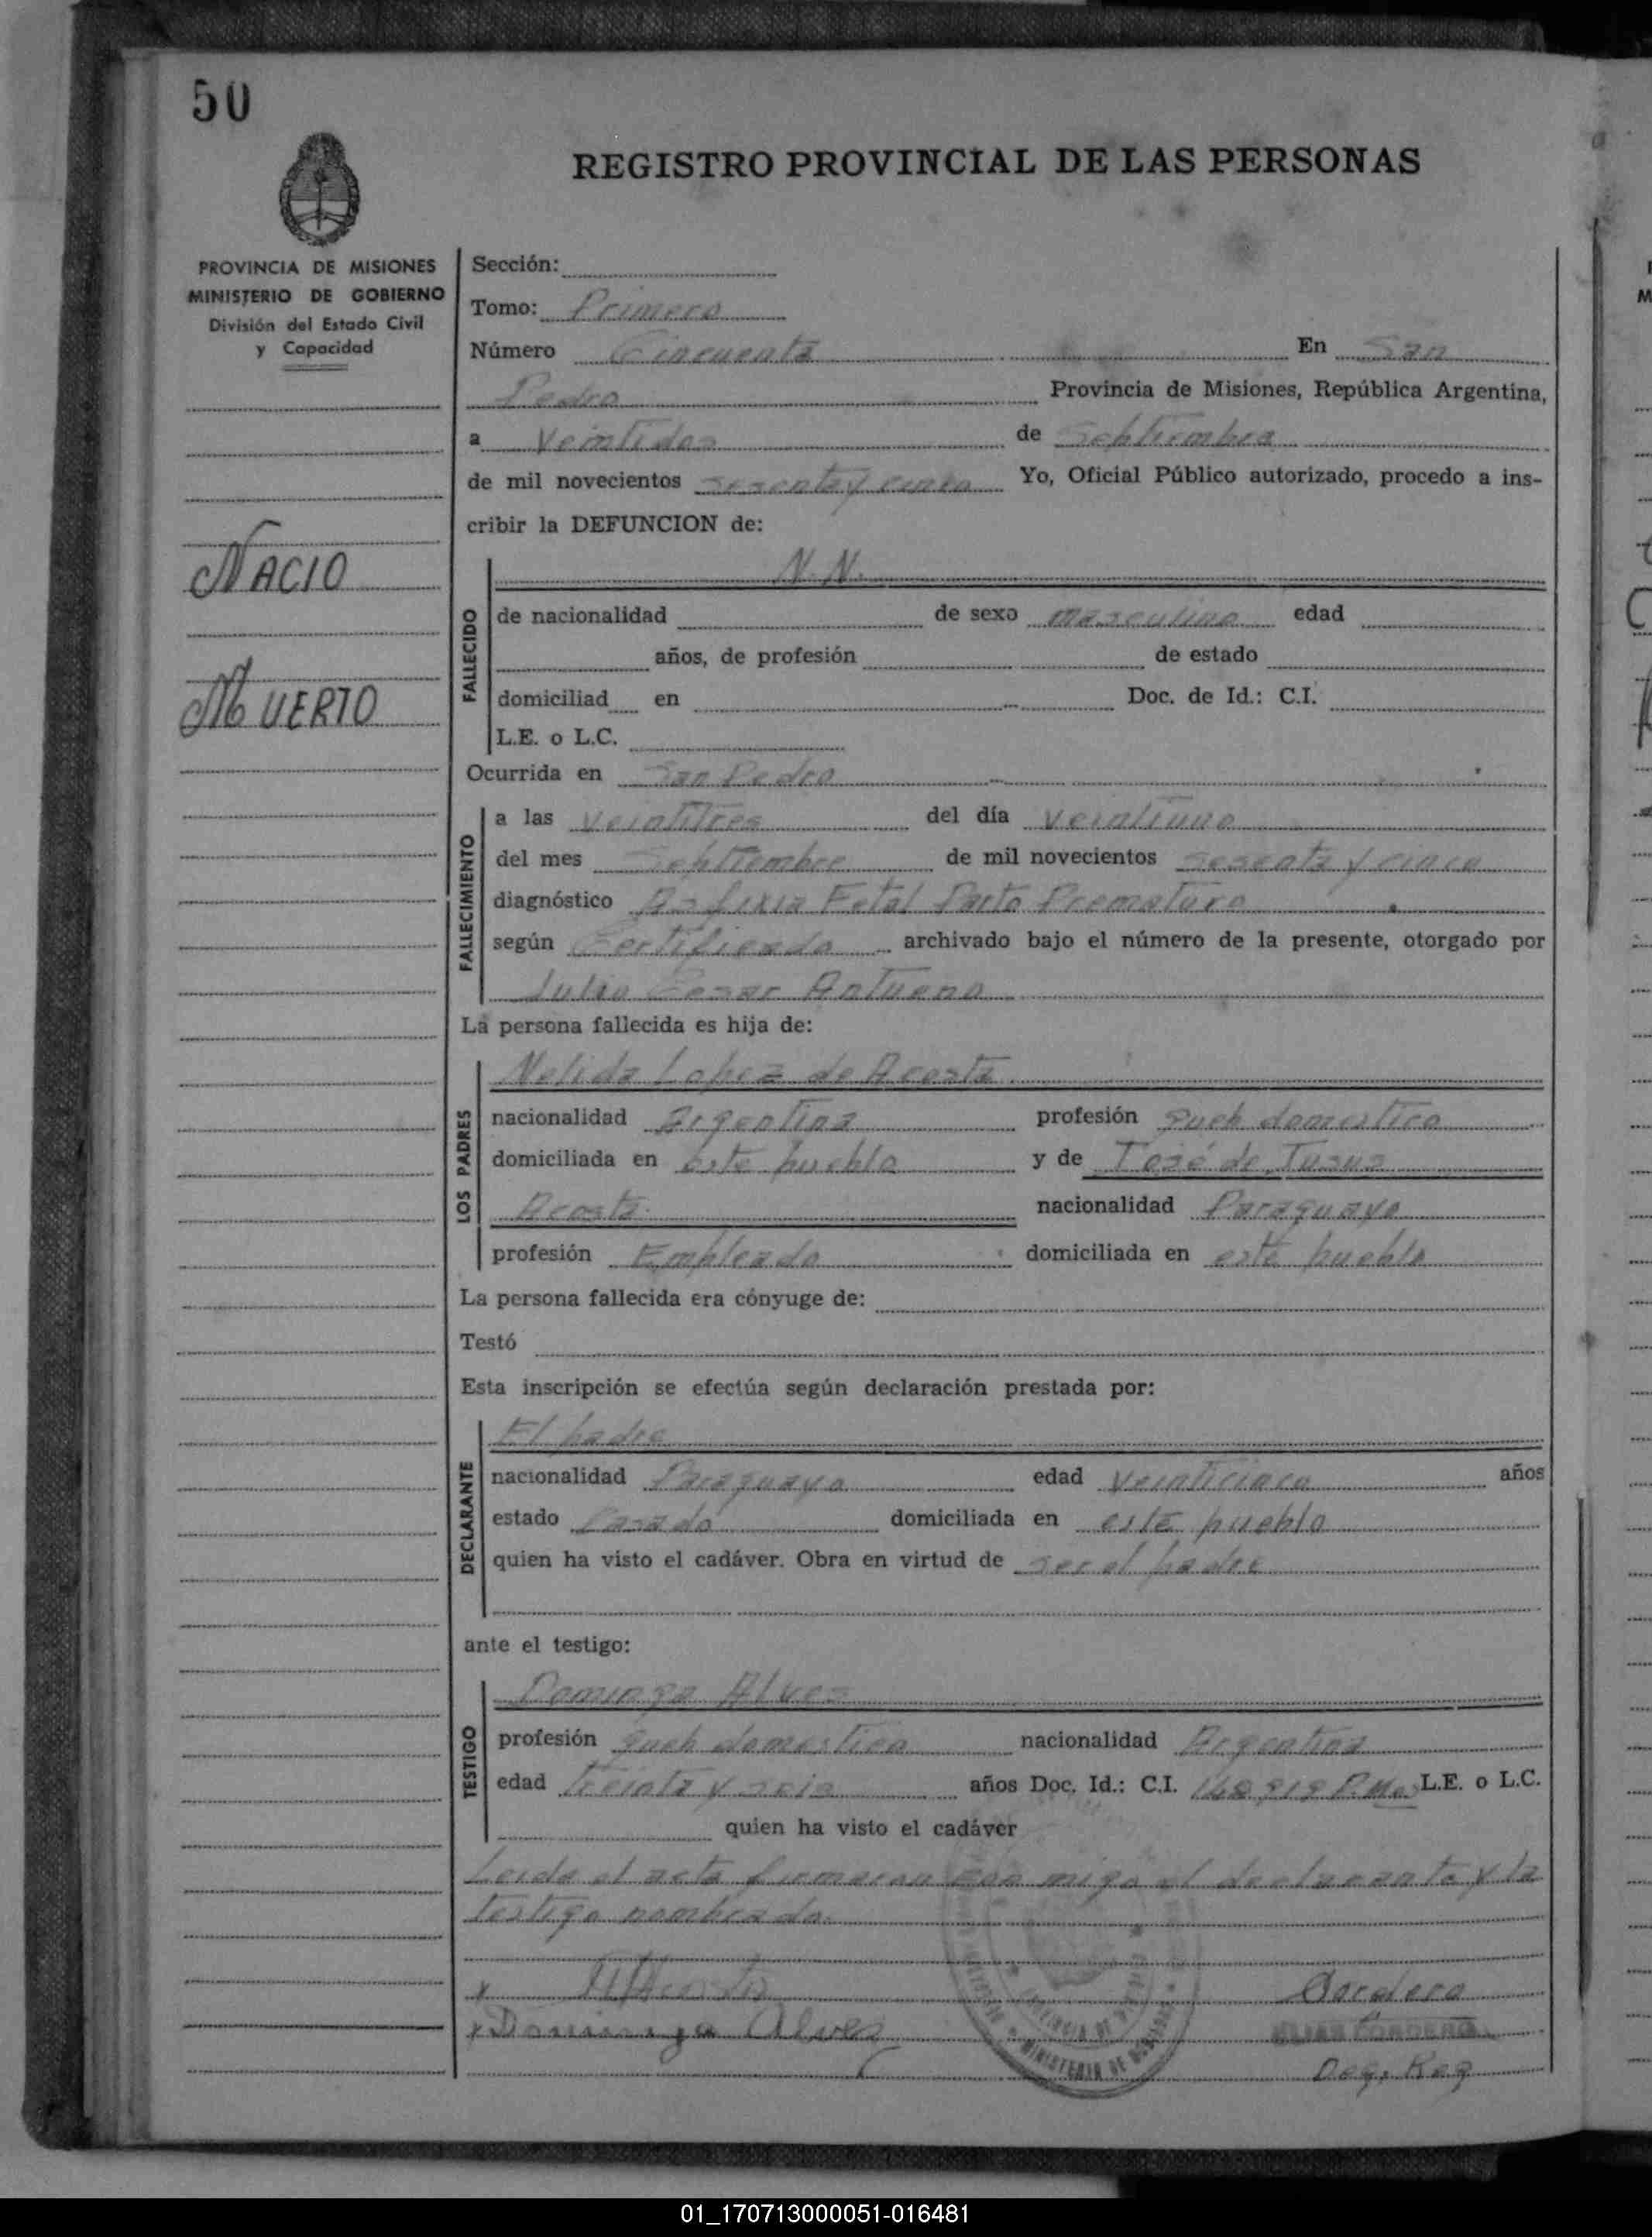 50
REGISTRO PROVINCIAL DE LAS PERSONAS
PROVINCIA DE MISIONES
MINISTERIO DE GOBIERNO
División del Estado Civil
y Capacidad
NACIO
MUERTO
Sección:
Tomo: Primero
Número Cincuenta En San
Pedro Provincia de Misiones, República Argentina,
a Veintidos de Septiembre
de mil novecientos sesenta y cinco Yo, Oficial Público autorizado, procedo a ins-
cribir la DEFUNCION de:
FALLECIDO
N. N.
de nacionalidad de sexo masculino edad
años, de profesión de estado
domiciliad en Doc. de Id.: C.I.
L.E. o L.C.
Ocurrida en San Pedro
FALLECIMIENTO
a las veintitres del día veintiuno
del mes Septiembre de mil novecientos sesenta y cinco
diagnóstico Asfixia Fetal Parto Prematuro
según Certificado archivado bajo el número de la presente, otorgado por
Julio Cesar Antueno
La persona fallecida es hija de:
LOS PADRES
Nelida Lopez de Acosta
nacionalidad Argentina profesión queh domestico
domiciliada en este pueblo y de José de Jusus
Acosta nacionalidad Paraguayo
profesión Empleado domiciliada en este pueblo
La persona fallecida era cónyuge de:
Testó
Esta inscripción se efectúa según declaración prestada por:
DECLARANTE
El padre
nacionalidad Paraguayo edad veinticinco años
estado Casado domiciliada en este pueblo
quien ha visto el cadáver. Obra en virtud de ser el padre
ante el testigo:
TESTIGO
Dominga Alves
profesión queh domestico nacionalidad Argentina
edad treinta y seis años Doc. Id.: C.I. L.E. o L.C.
quien ha visto el cadáver
Leida el acta firmaran con migo el declarante y la
testigo nombrada.
x Acosta Cordero
x Dominga Alves ELIAS CORDERO
MINISTERIO DE
Deg. Reg
01_170713000051-016481